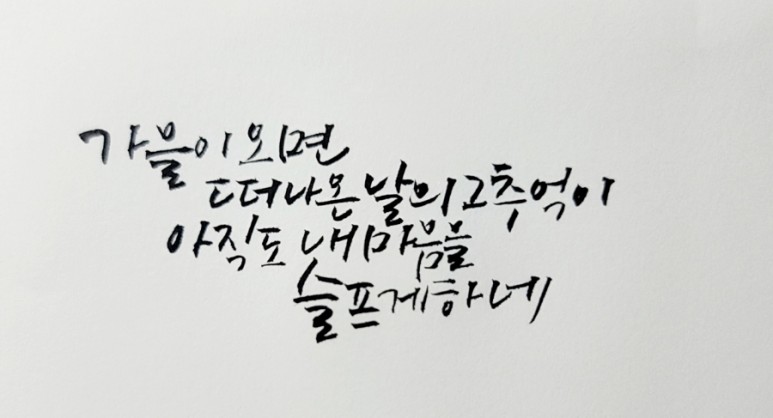 가을이 오면
떠나온 날의 그 추억이
아직도 내 마음을
슬프게 하네